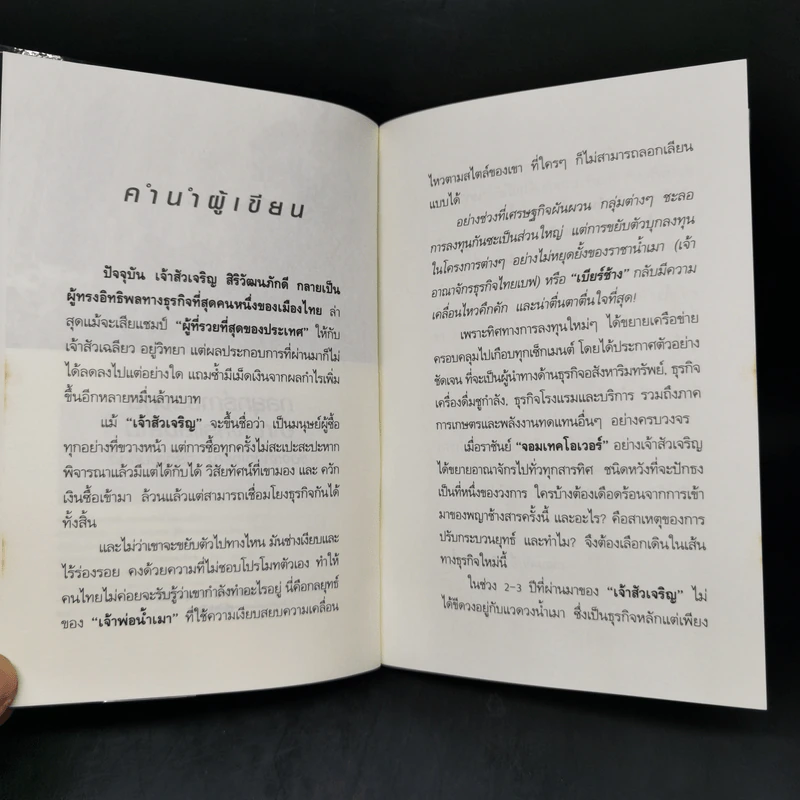 คำนำผู้เขียน
ปัจจุบัน เจ้าสัวเจริญ สิริวัฒนภักดี กลายเป็น
ผู้ทรงอิทธิพลทางธุรกิจที่สุดคนหนึ่งของเมืองไทย ล่า
สุดแม้จะเสียแชมป์ “ผู้ที่รวยที่สุดของประเทศ” ให้กับ
เจ้าสัวเฉลียว อยู่วิทยา แต่ผลประกอบการที่ผ่านมาก็ไม่
ได้ลดลงไปแต่อย่างใด แถมซ้ำมีเม็ดเงินจากผลกำไรเพิ่ม
ขึ้นอีกหลายหมื่นล้านบาท
แม้ “เจ้าสัวเจริญ” จะขึ้นชื่อว่า เป็นมนุษย์ผู้ซื้อ
ทุกอย่างที่ขวางหน้า แต่การซื้อทุกครั้งไม่สะเปะสะปะหาก
พิจารณาแล้วมีแต่ได้กับได้ วิสัยทัศน์ที่เขามอง และ ควัก
เงินซื้อเข้ามา ล้วนแล้วแต่สามารถเชื่อมโยงธุรกิจกันได้
ทั้งสิ้น
และไม่ว่าเขาจะขยับตัวไปทางไหน มันช่างเงียบและ
ไร้ร่องรอย คงด้วยความที่ไม่ชอบโปรโมทตัวเอง ทำให้
คนไทยไม่ค่อยจะรับรู้ว่าเขากำลังทำอะไรอยู่ นี่คือกลยุทธ์
ของ “เจ้าพ่อน้ำเมา” ที่ใช้ความเงียบสยบความเคลื่อน
ไหวตามสไตล์ของเขา ที่ใครๆ ก็ไม่สามารถลอกเลียน
แบบได้
อย่างช่วงที่เศรษฐกิจผันผวน กลุ่มต่างๆ ชะลอ
การลงทุนกันซะเป็นส่วนใหญ่ แต่การขยับตัวบุกลงทุน
ในโครงการต่างๆ อย่างไม่หยุดยั้งของราชาน้ำเมา (เจ้า
อาณาจักรธุรกิจไทยเบฟ) หรือ “เบียร์ช้าง” กลับมีความ
เคลื่อนไหวคึกคัก และน่าตื่นตาตื่นใจที่สุด!
เพราะทิศทางการลงทุนใหม่ๆ ได้ขยายเครือข่าย
ครอบคลุมไปเกือบทุกเซ็กเมนต์ โดยได้ประกาศตัวอย่าง
ชัดเจน ที่จะเป็นผู้นำทางด้านธุรกิจอสังหาริมทรัพย์, ธุรกิจ
เครื่องดื่มชูกำลัง, ธุรกิจโรงแรมและบริการ รวมถึงภาค
การเกษตรและพลังงานทดแทนอื่นๆ อย่างครบวงจร
เมื่อราชันย์ “จอมเทคโอเวอร์” อย่างเจ้าสัวเจริญ
ได้ขยายอาณาจักรไปทั่วทุกสารทิศ ชนิดหวังที่จะปักธง
เป็นที่หนึ่งของวงการ ใครบ้างต้องเดือดร้อนจากการเข้า
มาของพญาช้างสารครั้งนี้ และอะไร? คือสาเหตุของการ
ปรับกระบวนยุทธ์ และทำไม? จึงต้องเลือกเดินในเส้น
ทางธุรกิจใหม่นี้
ในช่วง 2-3 ปีที่ผ่านมาของ “เจ้าสัวเจริญ” ไม่
ได้ขีดวงอยู่กับแวดวงน้ำเมา ซึ่งเป็นธุรกิจหลักแต่เพียง